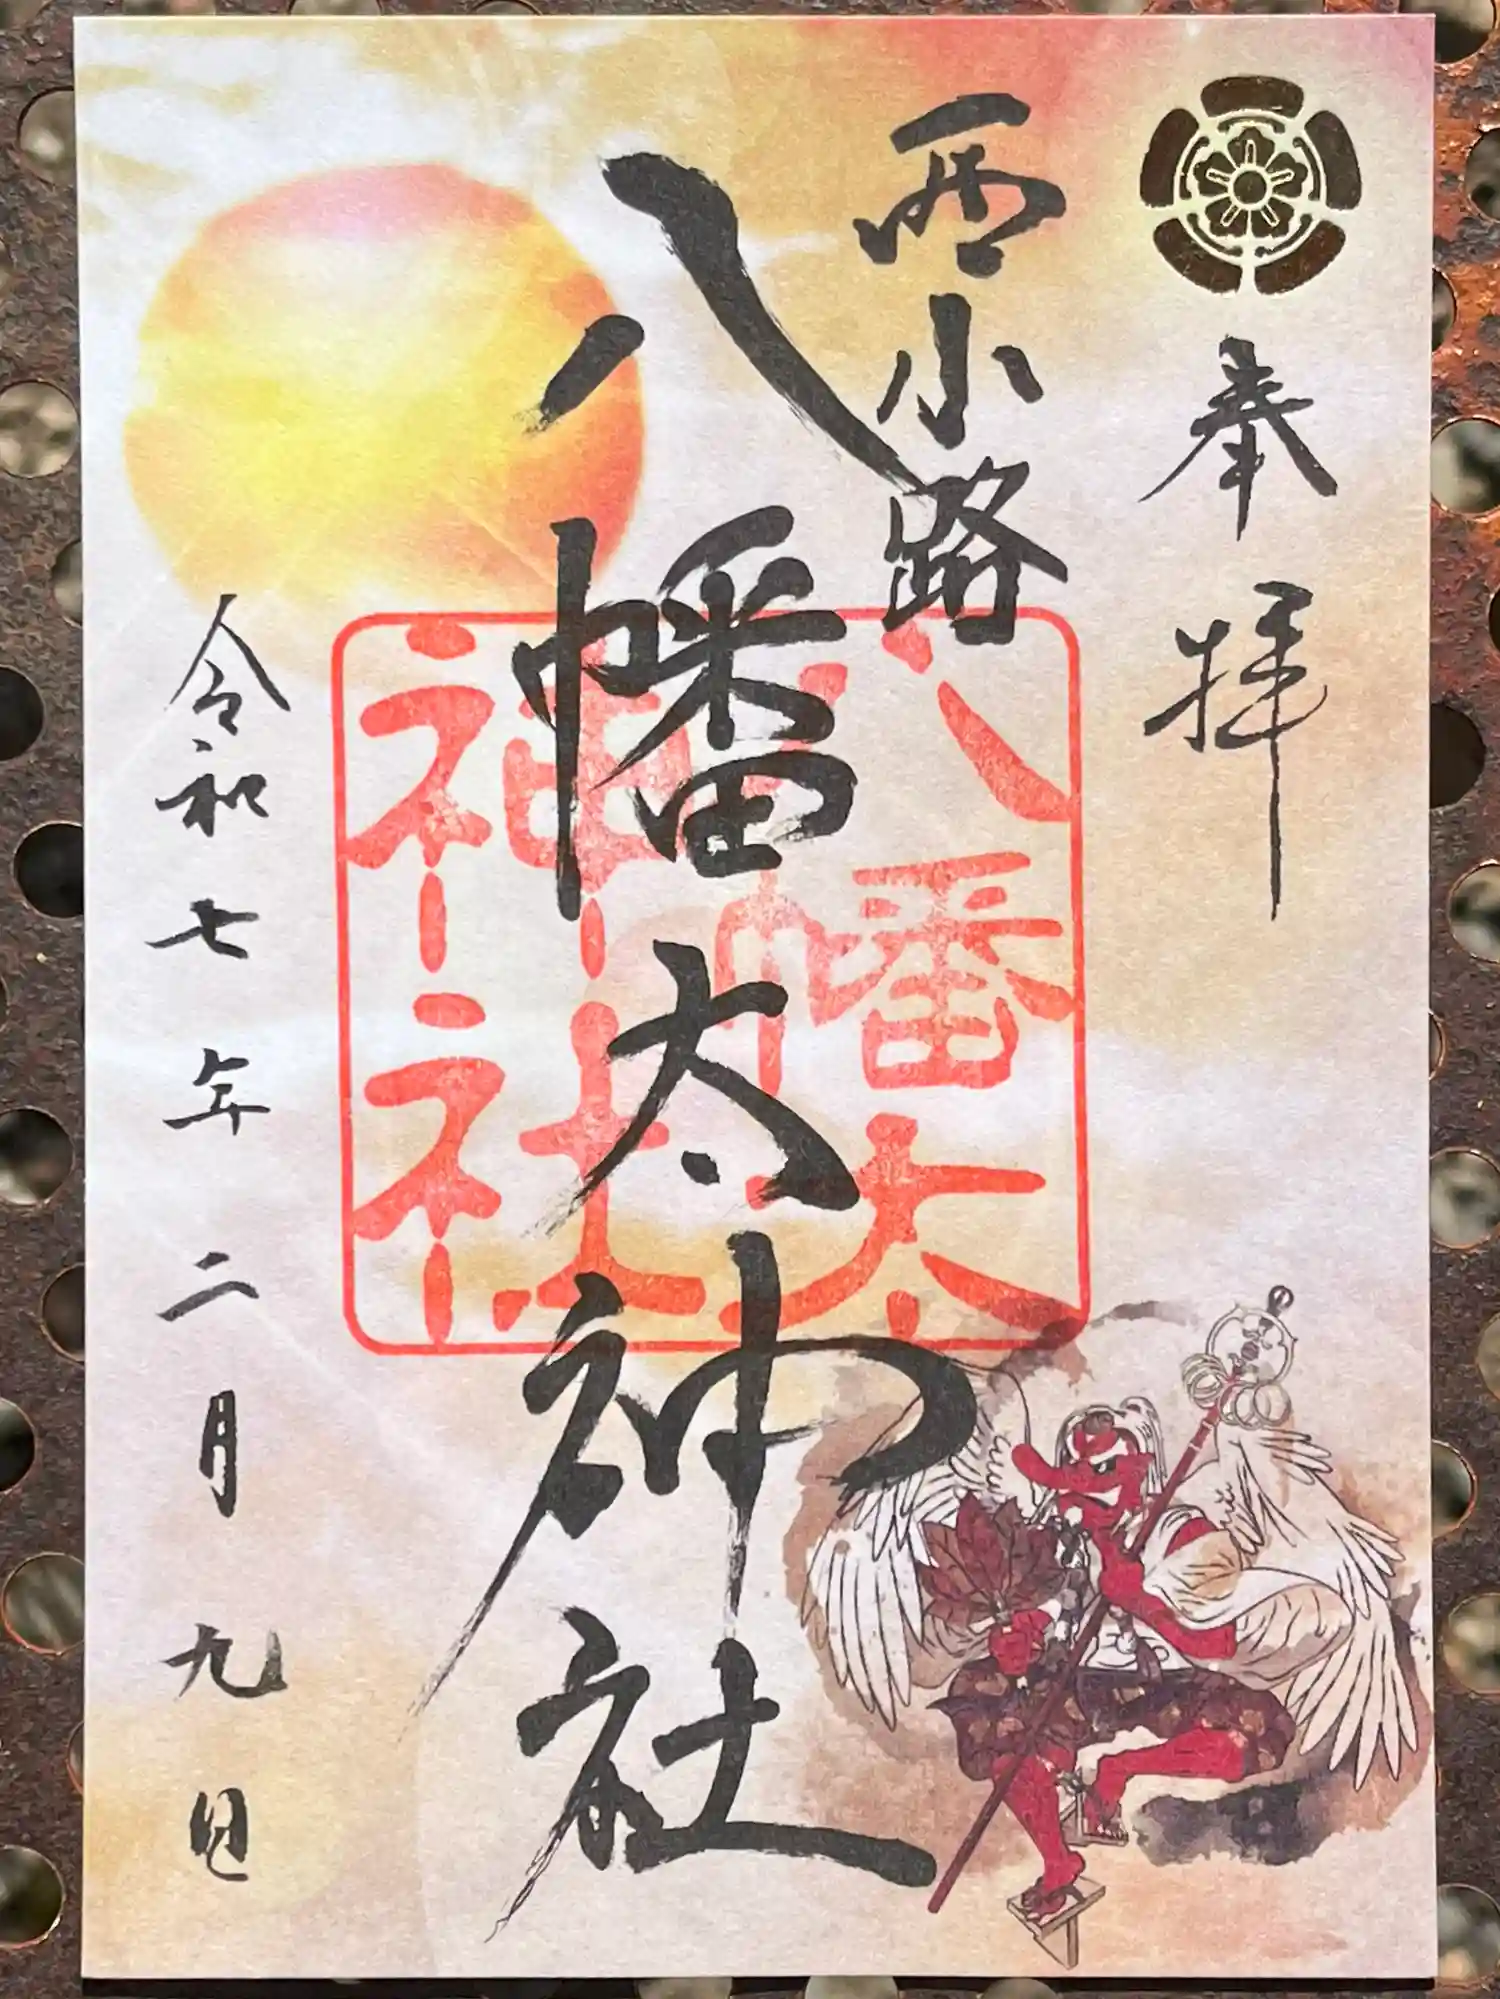 奉拝
西小路
八幡太神社
八幡大
神社
令和七年二月九日